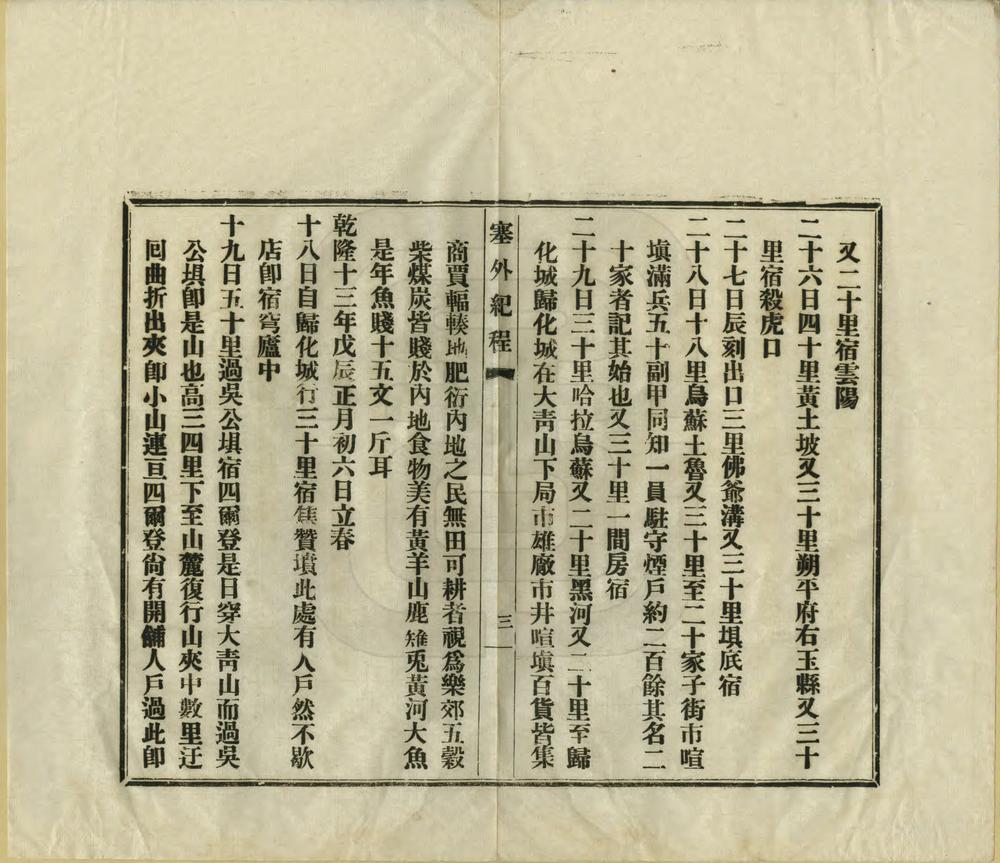 又二十里宿雲陽
二十六日四十里黃土坡又三十里朔平府右玉縣又三十
里宿殺虎口
二十七日辰刻出口三里佛爺溝又三十里埧底宿
二十八日十八里烏蘇土魯又三十里至二十家子街市喧
塡滿兵五十副甲同知一員駐守煙戶約二百餘其名二
十家者記其始也又三十里一間房宿
二十九日三十里哈拉烏蘇又二十里黑河又二十里至歸
化城歸化城在大靑山下局市雄廠市井喧塡百貨皆集
塞外紀程
三
商賈輻輳地肥衍內地之民無田可耕者視爲樂郊五穀
柴煤炭皆賤於內地食物美有黃羊山鹿雉兎黃河大魚
是年魚賤十五文一斤耳
乾隆十三年戊辰正月初六日立春
十八日自歸化城行三十里宿焦贊墳此處有人戶然不歇
店卽宿穹廬中
十九日五十里過吳公埧宿四爾登是日穿大靑山而過吳
公埧卽是山也高三四里下至山麓復行山夾中數里迂
囘曲折出夾卽小山連亘四爾登尙有開舖人戶過此卽